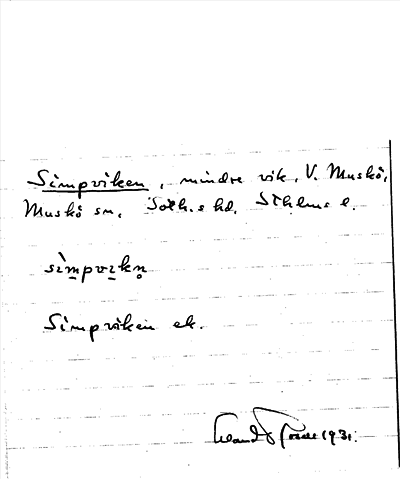 Simpviken, mindre vik, V. Muskö,
Muskö sn. Soth.s hd. Sthlms l.
sìmpvikn̥
Simpviken ek.
1931.